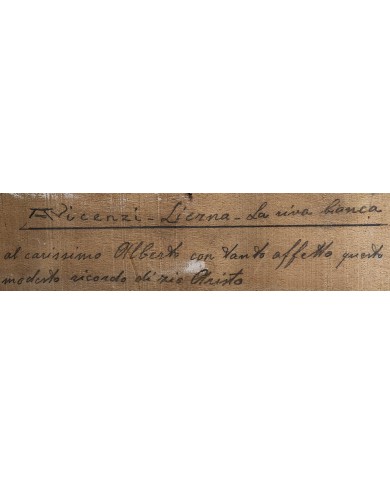 A Vicenzi - Lierna - La riva bianca
al carissimo Alberto con tanto affetto questo
modesto ricordo di zio Aristo